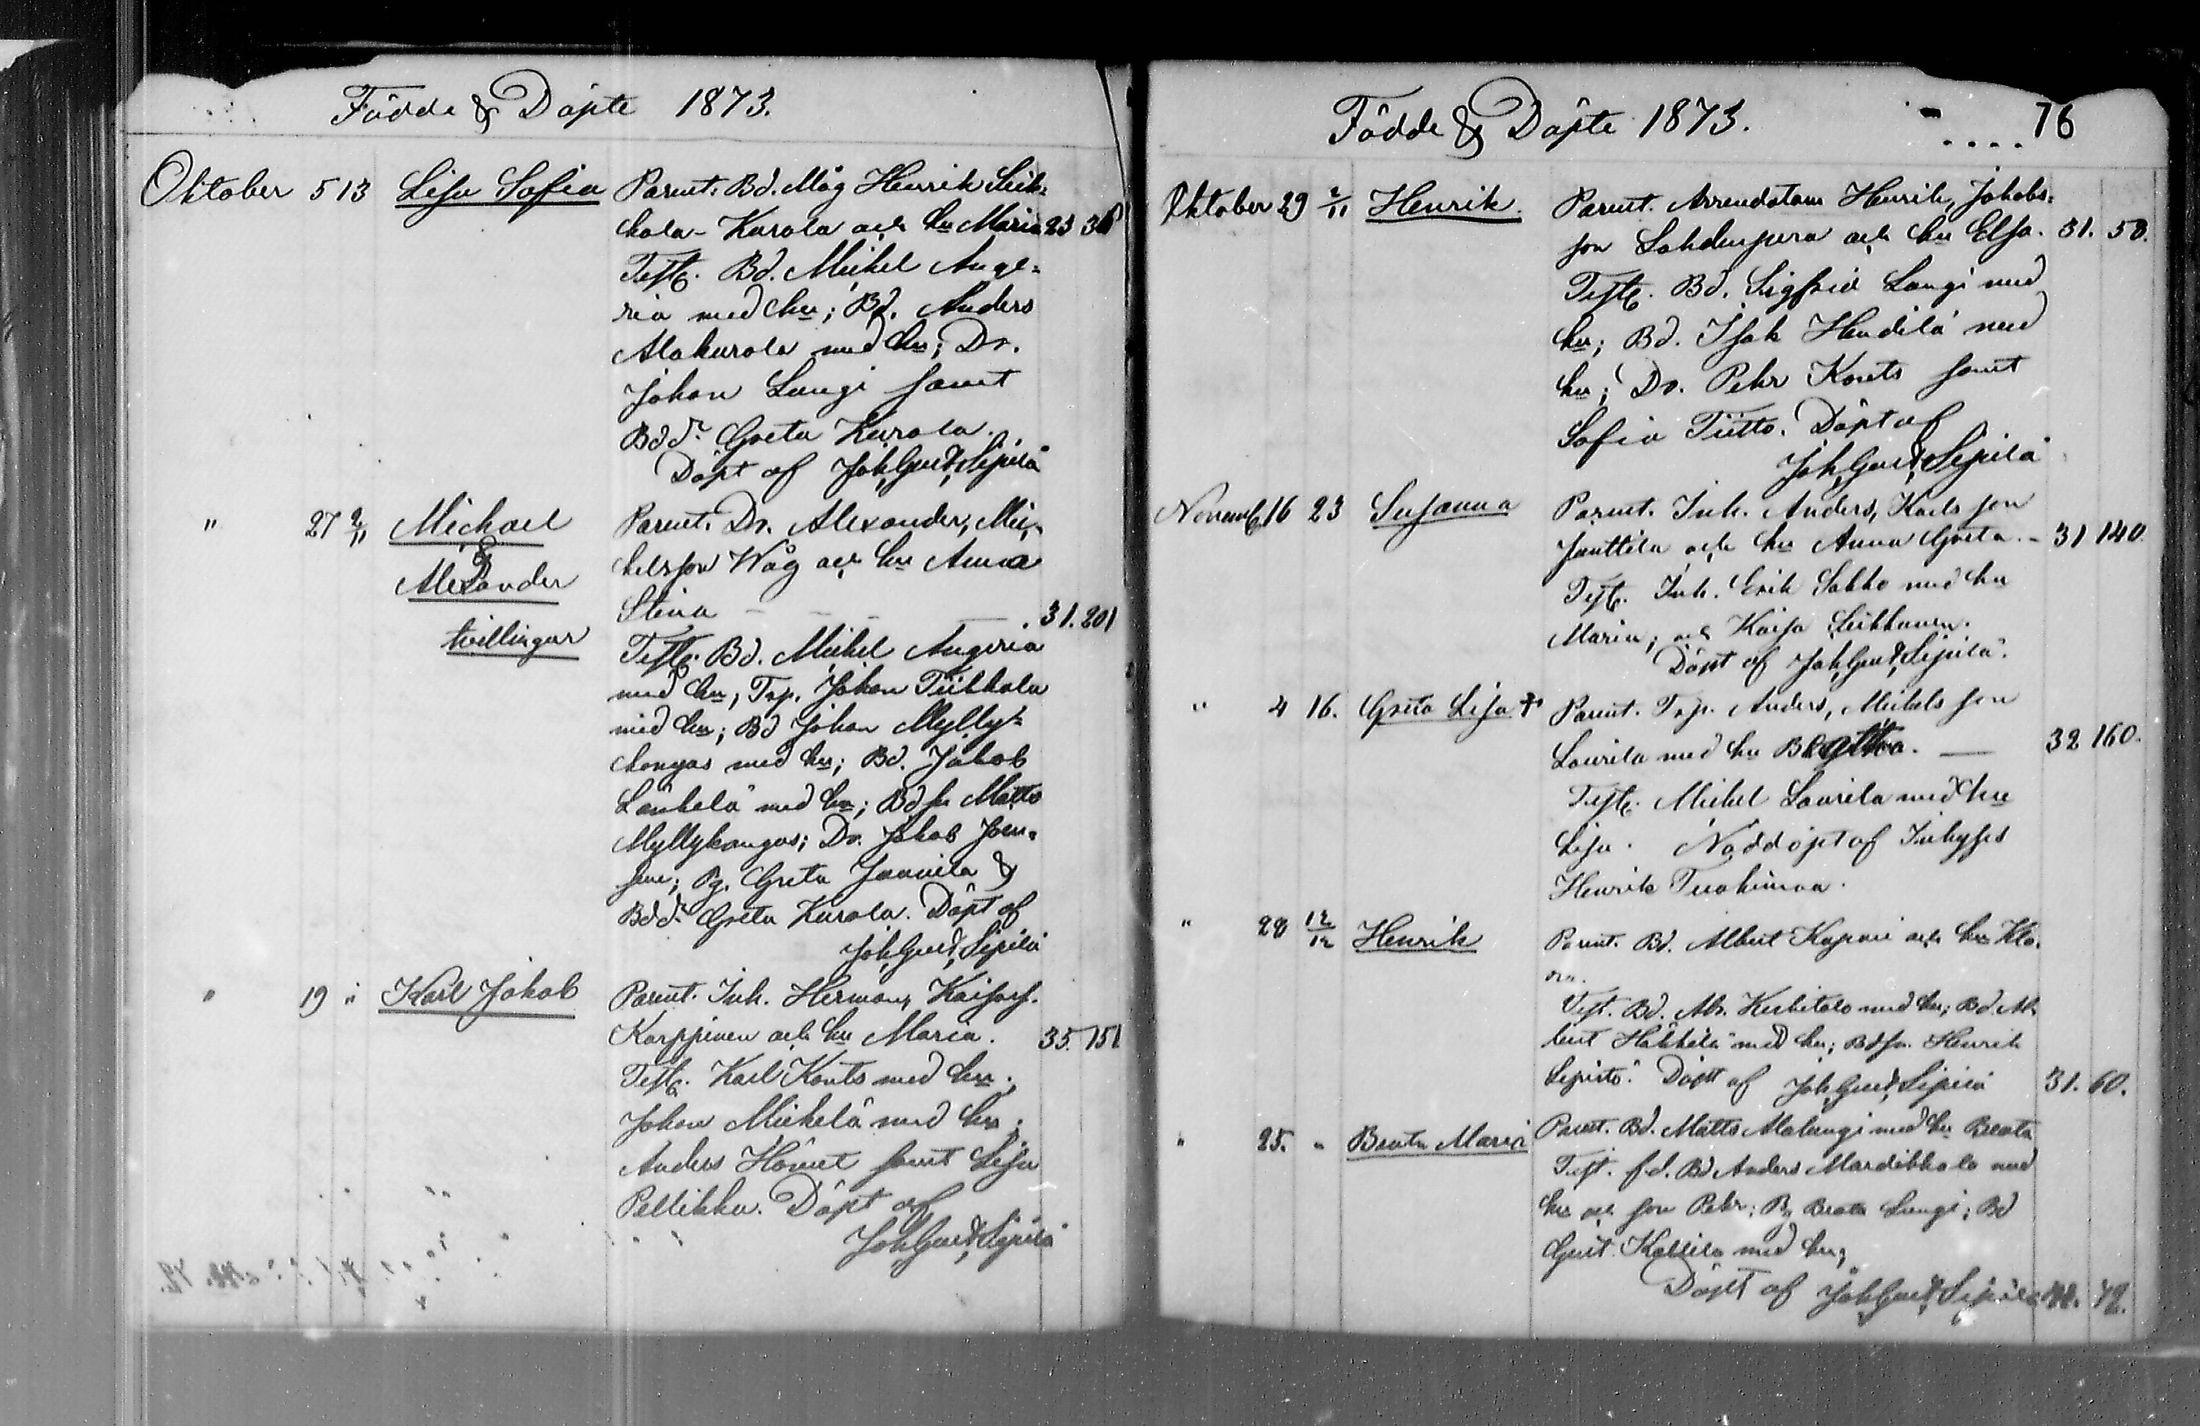 Födde & Döpte 1873.
Oktober 5 13 Lisa Sofia Parent. Bd. Måg Henrik Seik=
kala-Karola och hu Maria 23 36
Test. Bd. Mickel Ange=
ria med hu; Bd. Anders
Alakurola med hu; Dr.
Johan Langi samt
Bddr Greta Kurola.
Döpt af Joh. Gust. Sipilä
" 27 2/11 Michael Parent. Dr. Alexander, Mic=
& kelsson Wåg och hu Anna
Alexander Stina — — — 31. 201
tvillingar Test. Bd. Mickel Angeria
med hu, Trp. Johan Tiikkala
med hu; Bd Johan Mylly=
kangas med hu; Bd. Jakob
Länkelä med hu; Bdsn Matts
Myllykangas; Dr. Jakob Joen=
; Pg. Greta Jaanila &
Bddr Greta Kurola. Döpt af
Joh. Gust. Sipilä
" 19 " Karl Jakob Parent. Inh. Herman, Kaisas s.
Karppinen och hu Maria. 35. 151
Test. Karl Konts med hu;
Johan Mickelä med hu;
Anders Hömet samt Lisa
Pellikka. Döpt af
Joh. Gust. Sipilä
Födde & Döpte 1873. 76
Oktober 29 2/11 Henrik. Parent. Arrendatorn Henrik, Jakobs=
son Lahdenpera och hu Elsa. 31. 58.
Test. Bd. Sigfrid Langi med
hu; Bd. Isak Hendilä med
hu; Dr. Pehr Konts samt
Sofia Tiitto. Döpt af
Joh. Gust. Sipilä
Novemb. 16 23 Susanna Parent. Inh. Anders, Karlsson
Janttila och hu Anna Greta. - 31 140.
Test. Inh. Erik Sakko med hu
Maria; och Kaisa Seikkanen.
Döpt af Joh. Gust. Sipilä.
" 4 16. Greta Lisa + Parent. Trp. Anders, Mickelsson
Laurila med hu . — 32 160.
Test. Mickel Laurila med hu
Lisa. Nöddöpt af Inhyses
Henrik Tuohimaa.
" 28 12/12 Henrik Parent. Bd. Albert Kapari och hu Kla=
ra.
Test. Bd. Abr. Keskitalo med hu; Bd. Al=
bert Häkkilä med hu; Bdsn. Henrik
Lepistö. Döpt af Joh. Gust. Sipilä 31. 60.
" 25. " Beata Maria Parent. Bd. Matts Alalangi med hu Beata
Test. f.d. Bd Anders Mardikkala med
hu och son Pehr; Pg Beata Langi; Bd
Gust. Kallila med hu;
Döpt af Joh. Gust. Sipilä 72.